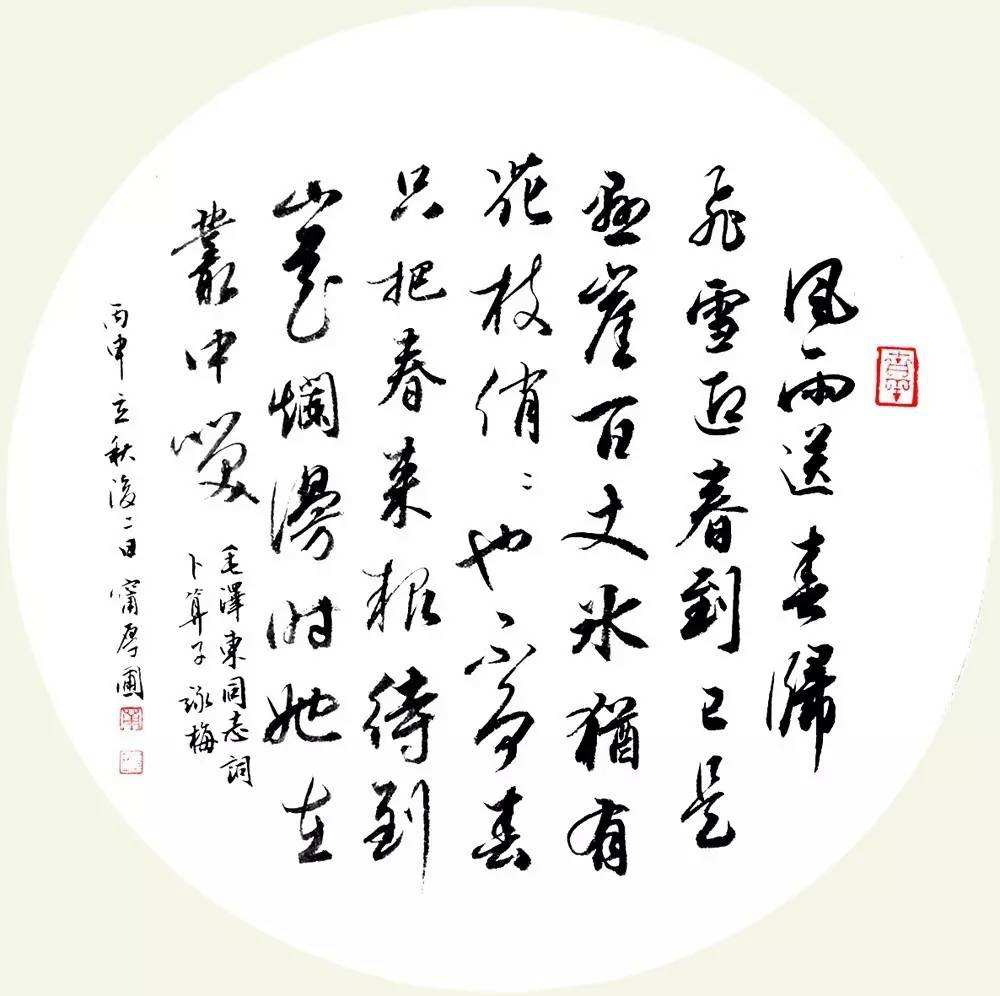 風雨送春歸
飛雪迎春到已是
懸崖百丈冰猶有
花枝俏〻也〻不爭春
只把春來報待到
山花爛漫时她在
叢中笑
毛澤東同志詞
卜算子 詠梅
丙申立秋後二日甯厚圃